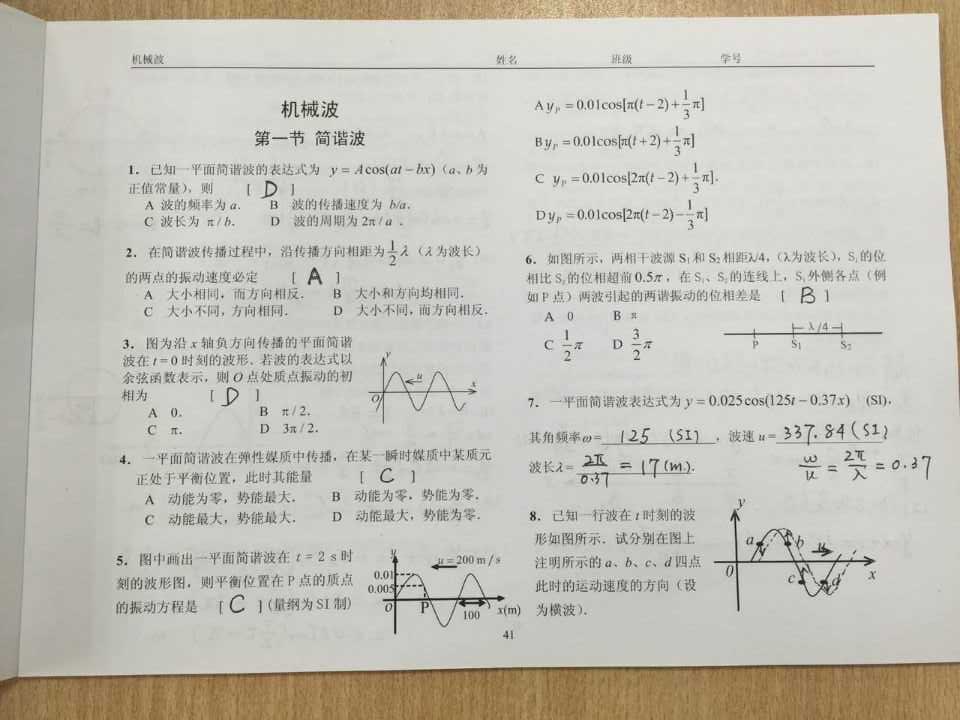 机械波 姓名 班级 学号
机械波
第一节 简谐波
1. 已知一平面简谐波的表达式为 y = Acos(at − bx)（a、b 为
正值常量），则 [ D ]
A 波的频率为 a. B 波的传播速度为 b/a.
C 波长为 π / b. D 波的周期为 2π / a .
2. 在简谐波传播过程中，沿传播方向相距为 1/2 λ（λ 为波长）
的两点的振动速度必定 [ A ]
A 大小相同，而方向相反. B 大小和方向均相同.
C 大小不同，方向相同. D 大小不同，而方向相反.
3. 图为沿 x 轴负方向传播的平面简谐
波在 t = 0 时刻的波形．若波的表达式以
余弦函数表示，则 O 点处质点振动的初
相为 [ D ]
A 0. B π / 2.
C π. D 3π / 2.
y
u
x
O
4. 一平面简谐波在弹性媒质中传播，在某一瞬时媒质中某质元
正处于平衡位置，此时其能量 [ C ]
A 动能为零，势能最大. B 动能为零，势能为零.
C 动能最大，势能最大. D 动能最大，势能为零.
5. 图中画出一平面简谐波在 t = 2 s 时
刻的波形图，则平衡位置在 P 点的质点
的振动方程是 [ C ] (量纲为 SI 制)
y
u = 200 m / s
0.01
0.005
O P 100 x(m)
A yP = 0.01cos[π(t − 2) + 1/3 π]
B yP = 0.01cos[π(t + 2) + 1/3 π].
C yP = 0.01cos[2π(t − 2) + 1/3 π].
D yP = 0.01cos[2π(t − 2) − 1/3 π]
6. 如图所示，两相干波源 S1 和 S2 相距λ/4，(λ为波长)，S1 的位
相比 S2 的位相超前 0.5π，在 S1、S2 的连线上，S1 外侧各点（例
如 P 点）两波引起的两谐振动的位相差是 [ B ]
A 0 B π
C 1/2 π D 3/2 π
λ /4
P S1 S2
7. 一平面简谐波表达式为 y = 0.025cos(125t − 0.37x) (SI)，
其角频率ω = 125 (SI) ，波速 u = 337.84 (SI)
波长λ = 2π/0.37 = 17 (m).
ω/u = 2π/λ = 0.37
8. 已知一行波在 t 时刻的波
形如图所示．试分别在图上
注明所示的 a、b、c、d 四点
此时的运动速度的方向（设
为横波）.
y
a b u
0 c d x
41